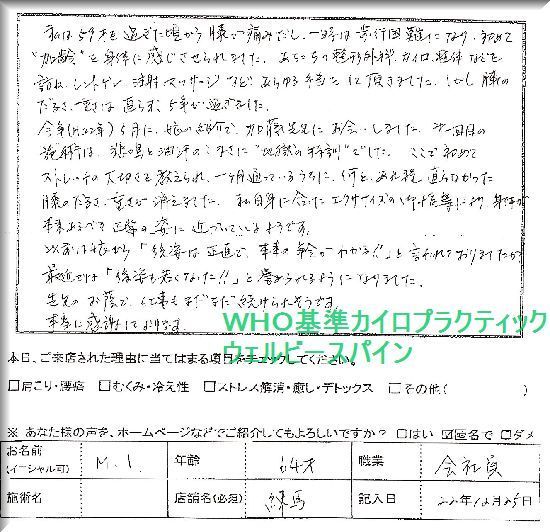 私は59才を過ぎた頃から腰が痛みだし、一時は歩行困難になり、初めて
"加齢"を身体に感じさせられました。あちこちの整形外科、カイロ、整体などを
訪ね、レントゲン、注射、マッサージなどあらゆる手当をして頂きました。しかし腰の
だるさ、重さは直らず、5年が過ぎました。
今年(H22年)5月に、娘の紹介で、加藤先生にお会いしました。第一回目の
施術は、悲鳴と油汗の "地獄の特訓"でした。ここで初めて
ストレッチの大切さを教えられ、一ヶ月通っているうちに、何と、あれ程、直らなかった
腰のだるさ、重さが消えてました。私自身に合ったエクササイズの御指導により、身体が
本来あるべき正常の姿に近づいているようです。
以前は娘から「後姿は正直で、本来の年令がわかる!!」と言われておりましたが
最近では「後姿も若くなった!!」と誉められるようになりました。
先生のお蔭で、仕事もまだまだ続けられそうです。
本当に感謝しております。
WHO基準カイロプラクティック
ウェルビースパイン
本日、ご来店された理由に当てはまる項目をチェックしてください。
□肩こり・腰痛 □むくみ・冷え性 □ストレス解消・癒し・デトックス □その他( )
※ あなた様の声を、ホームページなどでご紹介してもよろしいですか? □はい ☑匿名で □ダメ
お名前(イニシャル可) M.I. 年齢 64才 職業 会社員
施術名 店舗名(必須) 練馬 記入日 22年12月25日